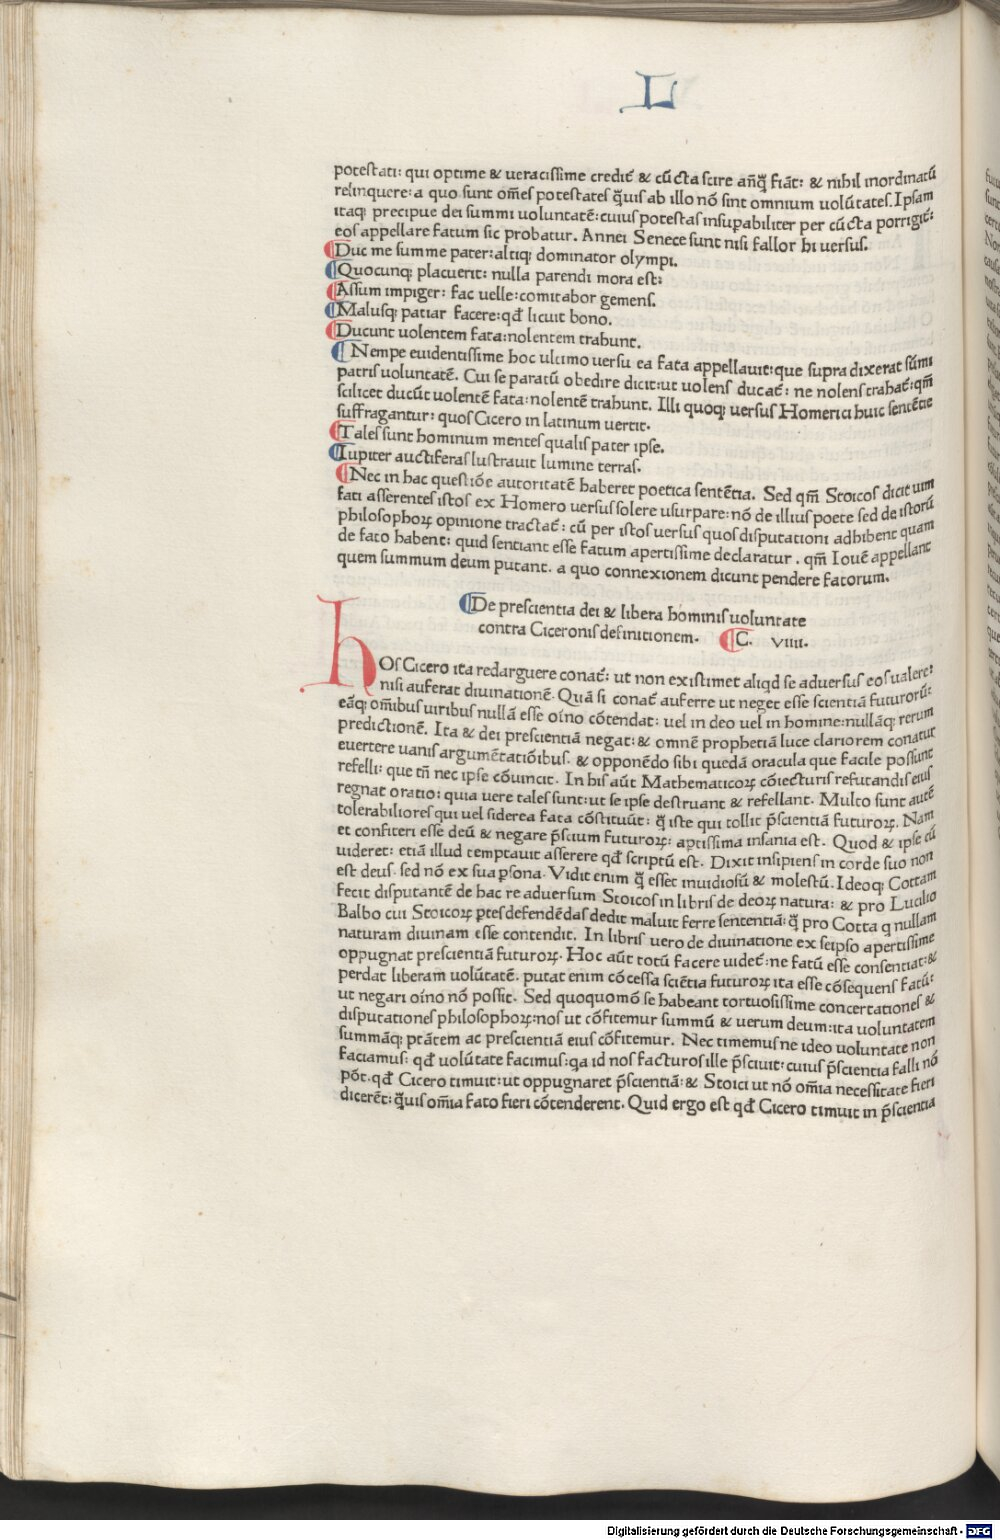 L
potestati: qui optime & ueracissime credit̃ & cũcta scire añq̃ fiãt: & nihil inordinatũ
relinquere: a quo sunt om̃es potestates q̃uis ab illo nõ sint omnium uolũtates. Ipsam
itaq; precipue dei summi uoluntatẽ: cuius potestas insupabiliter per cũcta porrigit̃:
eos appellare fatum sic probatur. Annei Senece sunt nisi fallor hi uersus.
Duc me summe pater: altiq; dominator olympi.
Quocunq; placuerit: nulla parendi mora est:
Assum impiger: fac uelle: comitabor gemens.
Malusq; patiar facere: qđ licuit bono.
Ducunt uolentem fata: nolentem trahunt.
Nempe euidentissime hoc ultimo uersu ea fata appellauit: que supra dixerat sũmi
patris uoluntatẽ. Cui se paratũ obedire dicit: ut uolens ducat̃: ne nolens trahat̃: qm̃
scilicet ducũt uolentẽ fata: nolentẽ trahunt. Illi quoq; uersus Homerici huic sentẽtie
suffragantur: quos Cicero in latinum uertit.
Tales sunt hominum mentes qualis pater ipse.
Iupiter auctiferas lustrauit lumine terras.
Nec in hac questiõe autoritatẽ haberet poetica sentẽtia. Sed qm̃ Stoicos dicit uim
fati asserentes istos ex Homero uersus solere usurpare: nõ de illius poete sed de istorũ
philosophoꝝ opinione tractat̃: cũ per istos uersus quos disputationi adhibent quam
de fato habent: quid sentiant esse fatum apertissime declaratur . qm̃ Iouẽ appellant
quem summum deum putant. a quo connexionem dicunt pendere fatorum.
De prescientia dei & libera hominis uoluntate
contra Ciceronis definitionem. C. viiii.
hOs Cicero ita redarguere conat̃: ut non existimet aliqd se aduersus eos ualere:
nisi auferat diuinationẽ. Quã si conat̃ auferre ut neget esse scientiã futurorũ:
eãq; om̃ibus uiribus nullã esse oĩno cõtendat: uel in deo uel in homine: nullãq; rerum
predictionẽ. Ita & dei prescientiã negat: & omnẽ prophetiã luce clariorem conatur
euertere uanis argumẽtatiõibus. & opponẽdo sibi quedã oracula que facile possunt
refelli: que tñ nec ipse cõuincit. In his aũt Mathematicoꝝ cõiecturis refutandis eius
regnat oratio: quia uere tales sunt: ut se ipse destruant & refellant. Multo sunt autẽ
tolerabiliores qui uel siderea fata cõstituũt: q̃ iste qui tollit p̃scientiã futuroꝝ. Nam
et confiteri esse deũ & negare p̃scium futuroꝝ: aptissima insania est. Quod & ipse cũ
uideret: etiã illud temptauit asserere qđ scriptũ est. Dixit insipiens in corde suo non
est deus. sed nõ ex sua ꝑsona. Vidit enim q̃ esset inuidiosũ & molestũ. Ideoq; Cottam
fecit disputantẽ de hac re aduersum Stoicos in libris de deoꝝ natura: & pro Lucilio
Balbo cui Stoicoꝝ ptes defendẽdas dedit maluit ferre sententiã: q̃ pro Cotta q nullam
naturam diuinam esse contendit. In libris uero de diuinatione ex seipso apertissime
oppugnat prescientiã futuroꝝ. Hoc aũt totũ facere uidet̃: ne fatũ esse consentiat: &
perdat liberam uolũtatẽ. putat enim cõcessa sciẽtia futuroꝝ ita esse cõsequens fatũ:
ut negari oĩno nõ possit. Sed quoquomõ se habeant tortuosissime concertationes &
disputationes philosophoꝝ: nos ut cõfitemur summũ & uerum deum: ita uoluntatem
summãq; ptãtem ac prescientiã eius cõfitemur. Nec timemus ne ideo uoluntate non
faciamus: qđ uolũtate facimus: qa id nos facturos ille p̃sciuit: cuius p̃scientia falli nõ
põt. qđ Cicero timuit: ut oppugnaret p̃scientiã: & Stoici ut nõ om̃ia necessitate fieri
dicerẽt: q̃uis om̃ia fato fieri cõtenderent. Quid ergo est qđ Cicero timuit in p̃scientia
Digitalisierung gefördert durch die Deutsche Forschungsgemeinschaft - DFG